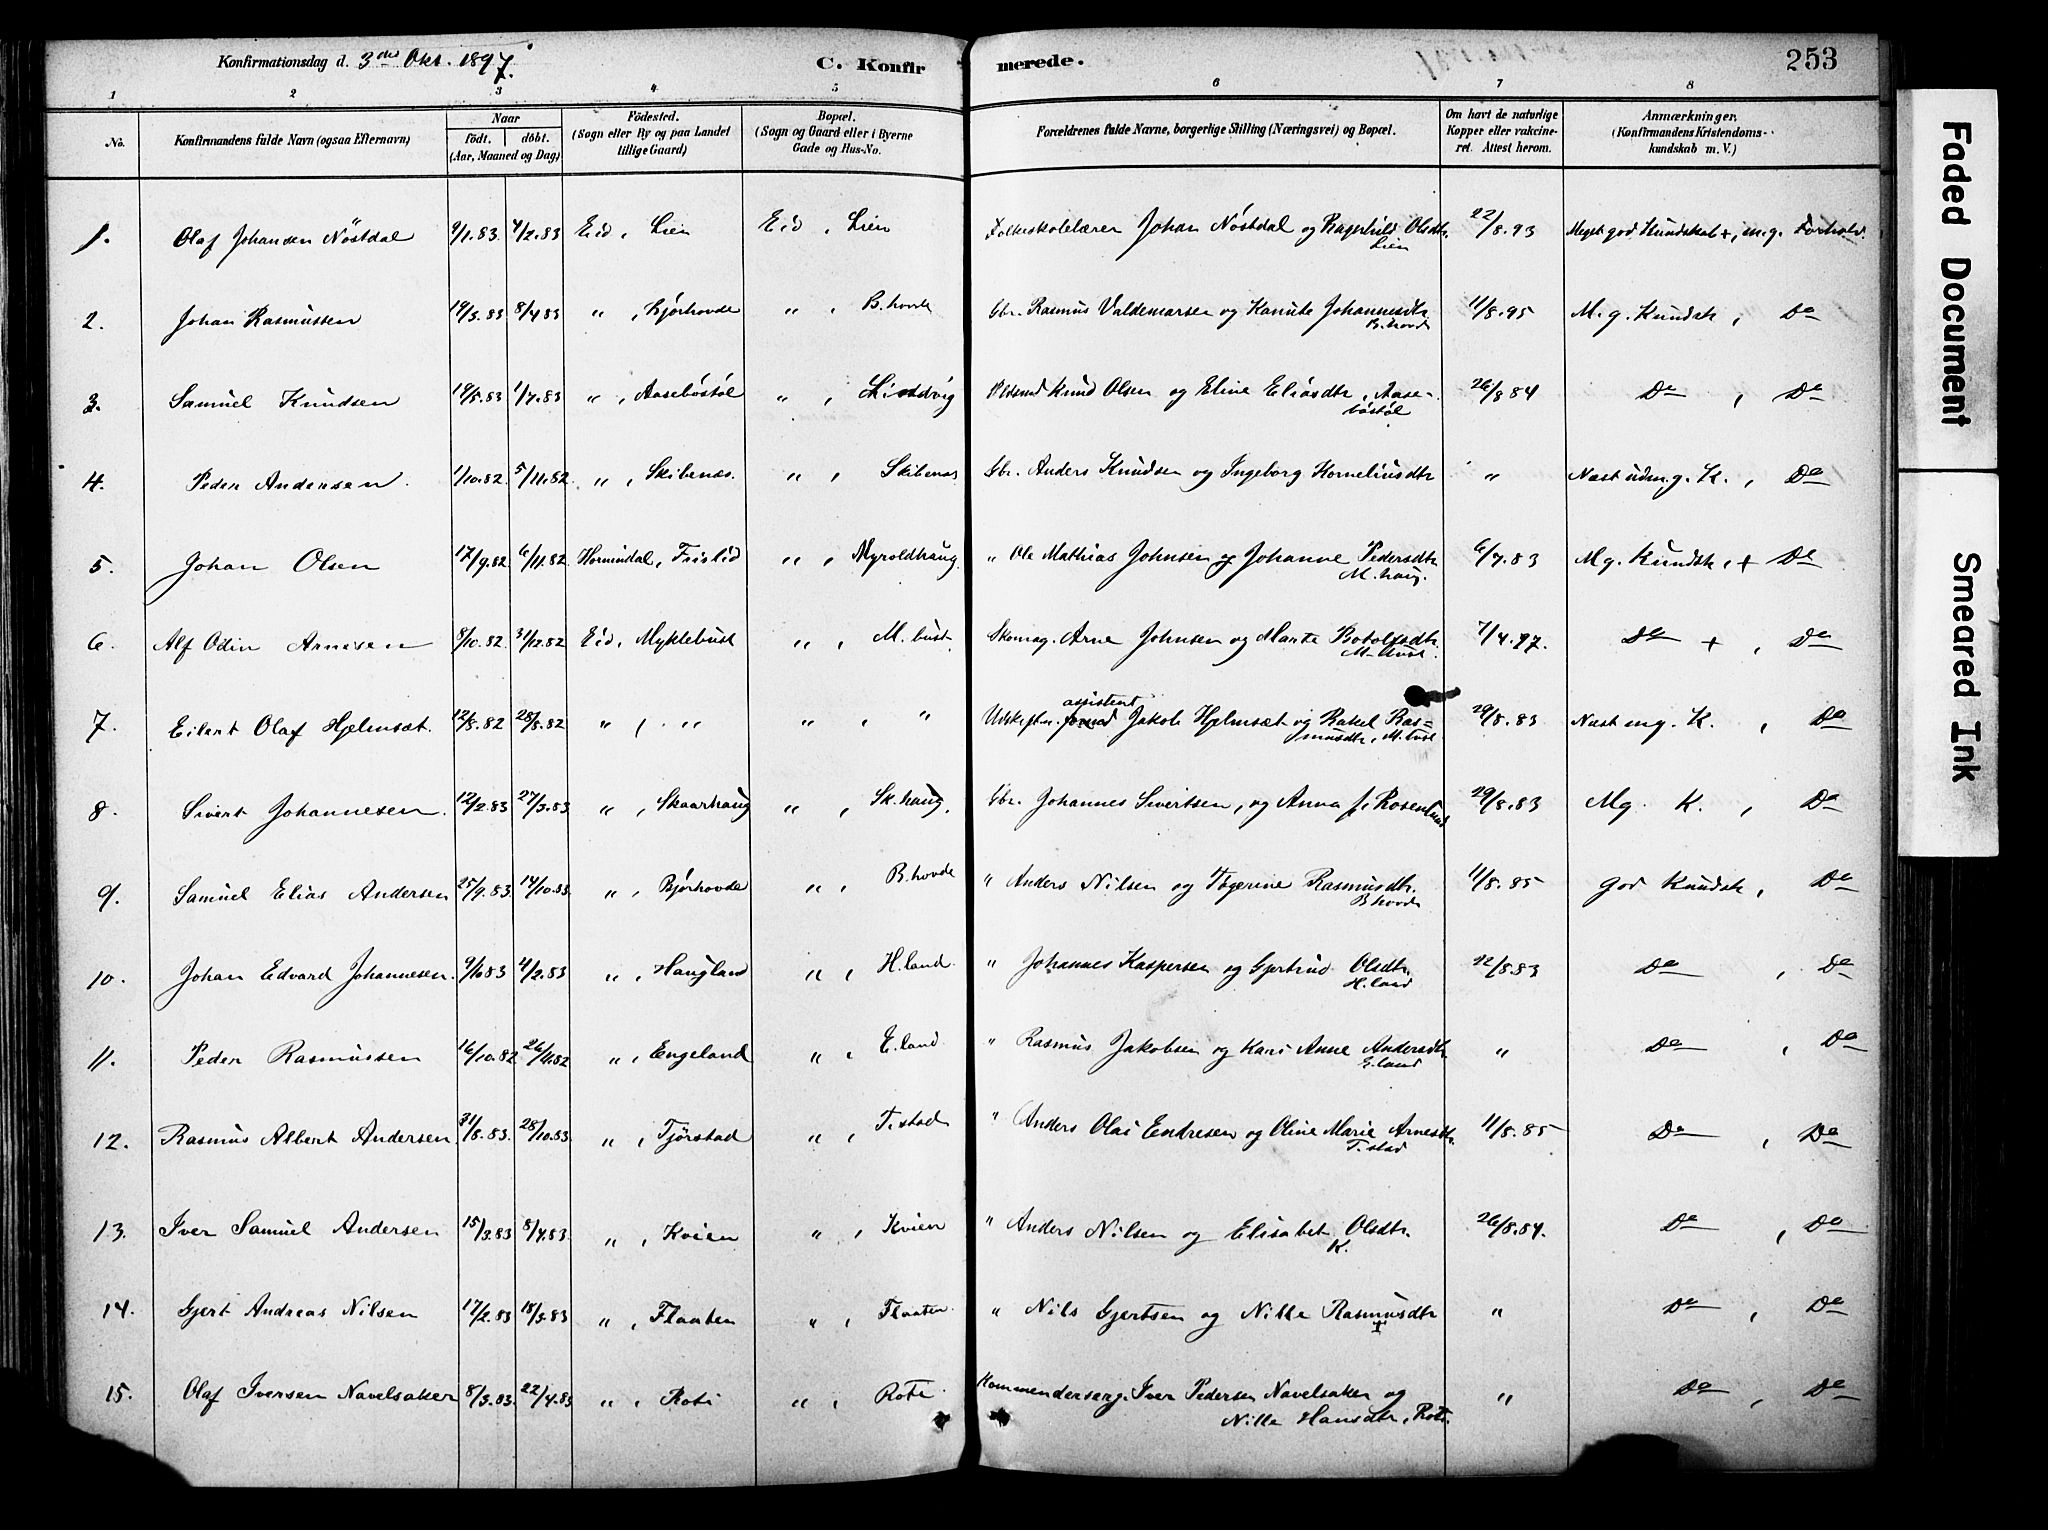 Konfirmationsdag d. 3die Okt. 1897.
C. Konfirmerede.
253
1 2 3 4. 5 6 7 8
No.
Konfirmandens fulde Navn (ogsaa Efternavn)
Naar
Födt. döbt.
(Aar, Maaned og Dag)
Födested.
(Sogn eller By og paa Landet
tillige Gaard)
Bopæl.
(Sogn og Gaard eller i Byerne
Gade og Hus-No.
Forældrenes fulde Navne, borgerlige Stilling (Næringsvei) og Bopæl.
Om havt de naturlige
Kopper eller vakcine-
ret. Attest herom.
Anmærkninger.
(Konfirmandens Kristendoms-
kundskab m. V.)
1. Olaf Johansen Nöstdal 9/1.83 4/2.83 Eid, Lien Eid, Lien Folkeskolelærer Johan Nöstdal og Ragnhild Olsdtr. Lien 22/8.93 Meget god Kundskab +, m.g. Forhold.
2. Johan Rasmussen 19/3.83 8/4.83 " , Bjørhovde " , B.hovde Gbr. Rasmus Valdemarsen og Kanute Johannesdtr B.hovd 11/8.95 M. g. Kundsk , Do
3. Samuel Knudsen 19/5.83 1/7.83 " , Aaseböstöl " , Knud Olsen og Eline Eliasdtr, Aaseböstöl 26/8 84 Do , Do
4. Peder Andersen. 1/10.82 5/11.82 " , Skibenæs. " , Skibenæs Gbr. Anders Knudsen og Ingeborg Korneliusdtr " Næst m.g. K. , Do
5. Johan Olsen 17/9.82 6/11.82 Hornindal, Frislid " , Myroldhaug " Ole Mathias Johnsen og Johanne Pedersdtr M.haug. 6/7.83 Mg. Kundsk, + Do
6. Alf Odin Arnesen 8/10.82 31/12.82 Eid, Myklebust " , M. bust Skomag. Arne Johnsen og Marte Botolfsdtr M.bust. 7/4.97. Do + , Do
7. Eilert Olaf Hjelmsæt. 12/8.82 28/8.82 " , " " , " Udskiftn. assistent Jakob Hjelmsæt og Rakel Rasmusdtr, M.bust 29/8.83 Næst mg. K. , Do
8. Sivert Johannesen. 12/2.83 27/3.83 " , Skaarhaug " , Sk.haug, Gbr. Johannes Sivertsen, og Anna f. Rosenlund 29/8.83 Mg. K. , Do
9. Samuel Elias Andersen 25/9.83 14/10.83 " , Bjørhovde " , B.hovde " Anders Nilsen og Tøgerine Rasmusdtr. B.hovde 11/8.85 god Kundsk, Do
10. Johan Edvard Johannesen. 4/2.83 " , Haugland " , H.land. " Johannes Kaspersen og Gjertrud Olsdtr. H.land 22/8.83 Do , Do
11. Peder Rasmussen 16/10.82 26/11.82 " , Engeland " , E.land " Rasmus Jakobsen og Kari Anne Andersdtr E.land " Do , Do
12. Rasmus Albert Andersen 31/8.83. 28/10.83 " , Tjørstad " , T.stad " Anders Olai Endresen og Oline Marie Arnesdtr. T.stad 11/8.85 Do , Do
13. Iver Samuel Andersen 15/3.83 8/4.83 " , Kvien " , Kvien " Anders Nilsen og Elisabet Olsdtr. K. 26/8.84. Do , Do
14. Gjert Andreas Nilsen 17/2.83 18/3.83 " , Flaaten " , Flaaten " Nils Gjertsen og Nille Rasmusdtr " Do , Do
15. Olaf Iversen Navelsaker 8/3.83. 22/4.83 " , Roti " , Roti Kommendersergj. Iver Pedersen Navelsaker og Nille Hansdtr, Roti. " Do , Do
Faded Document
Smeared Ink